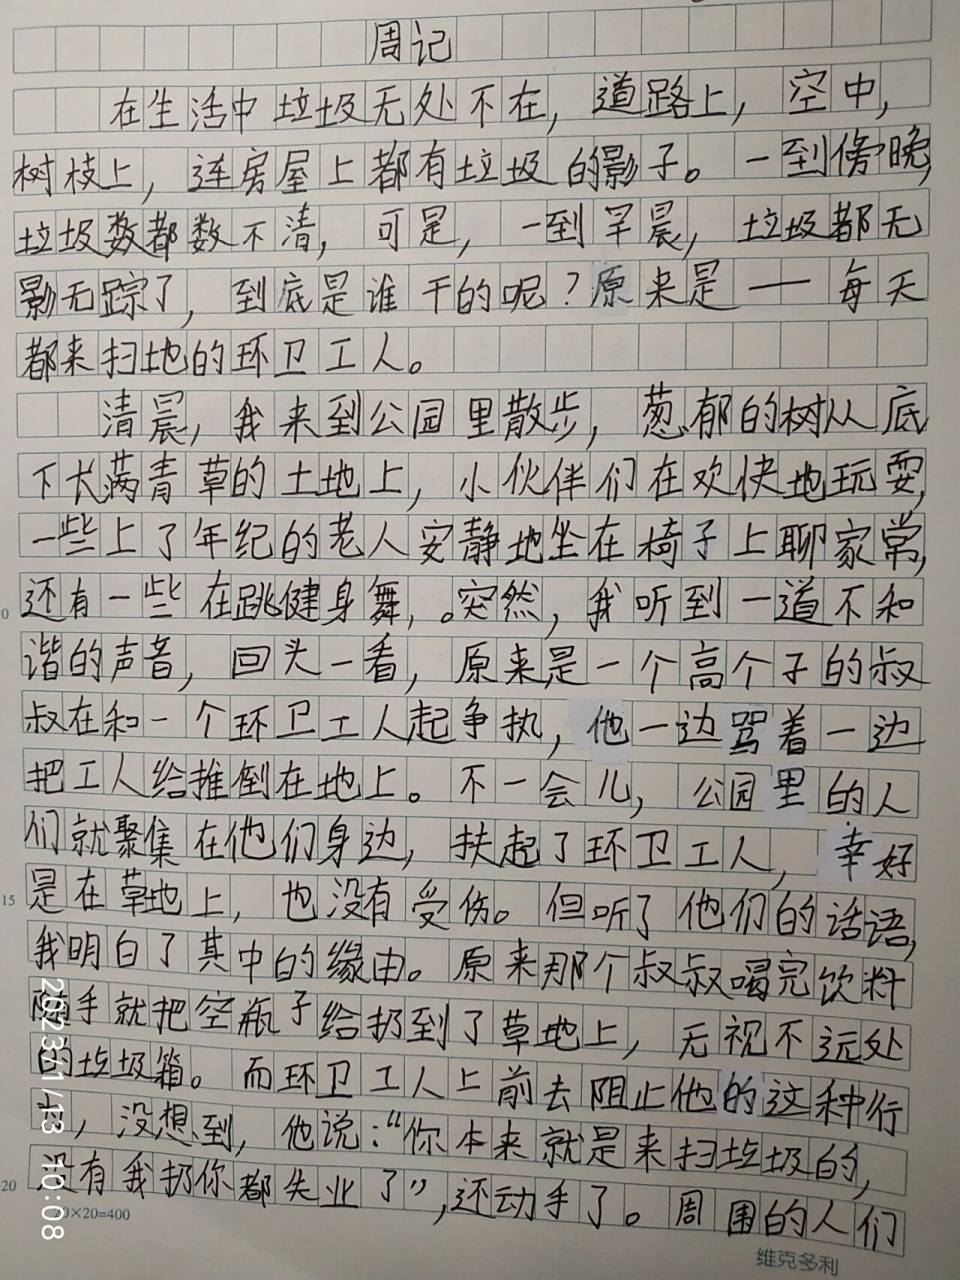 周记
在生活中垃圾无处不在，道路上，空中，
树枝上，连房屋上都有垃圾的影子。一到傍晚，
垃圾数都数不清，可是，一到早晨，垃圾都无
影无踪了，到底是谁干的呢？原来是——每天
都来扫地的环卫工人。
清晨，我来到公园里散步，葱郁的树从底
下长满青草的土地上，小伙伴们在欢快地玩耍，
一些上了年纪的老人安静地坐在椅子上聊家常，
还有一些在跳健身舞，。突然，我听到一道不和
谐的声音，回头一看，原来是一个高个子的叔
叔在和一个环卫工人起争执，他一边骂着一边
把工人给推倒在地上。不一会儿，公园里的人
们就聚集在他们身边，扶起了环卫工人，幸好
是在草地上，也没有受伤。但听了他们的话语，
我明白了其中的缘由。原来那个叔叔喝完饮料
随手就把空瓶子给扔到了草地上，无视不远处
的垃圾箱。而环卫工人上前去阻止他的这种行
为，没想到，他说：“你本来就是来扫垃圾的，
没有我扔你都失业了”，还动手了。周围的人们
0
15
20
20×20=400
维克多利
2023/01/13 10:08